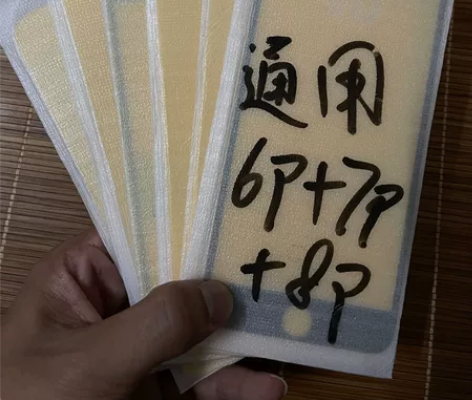 通用
6P+7P
+8P